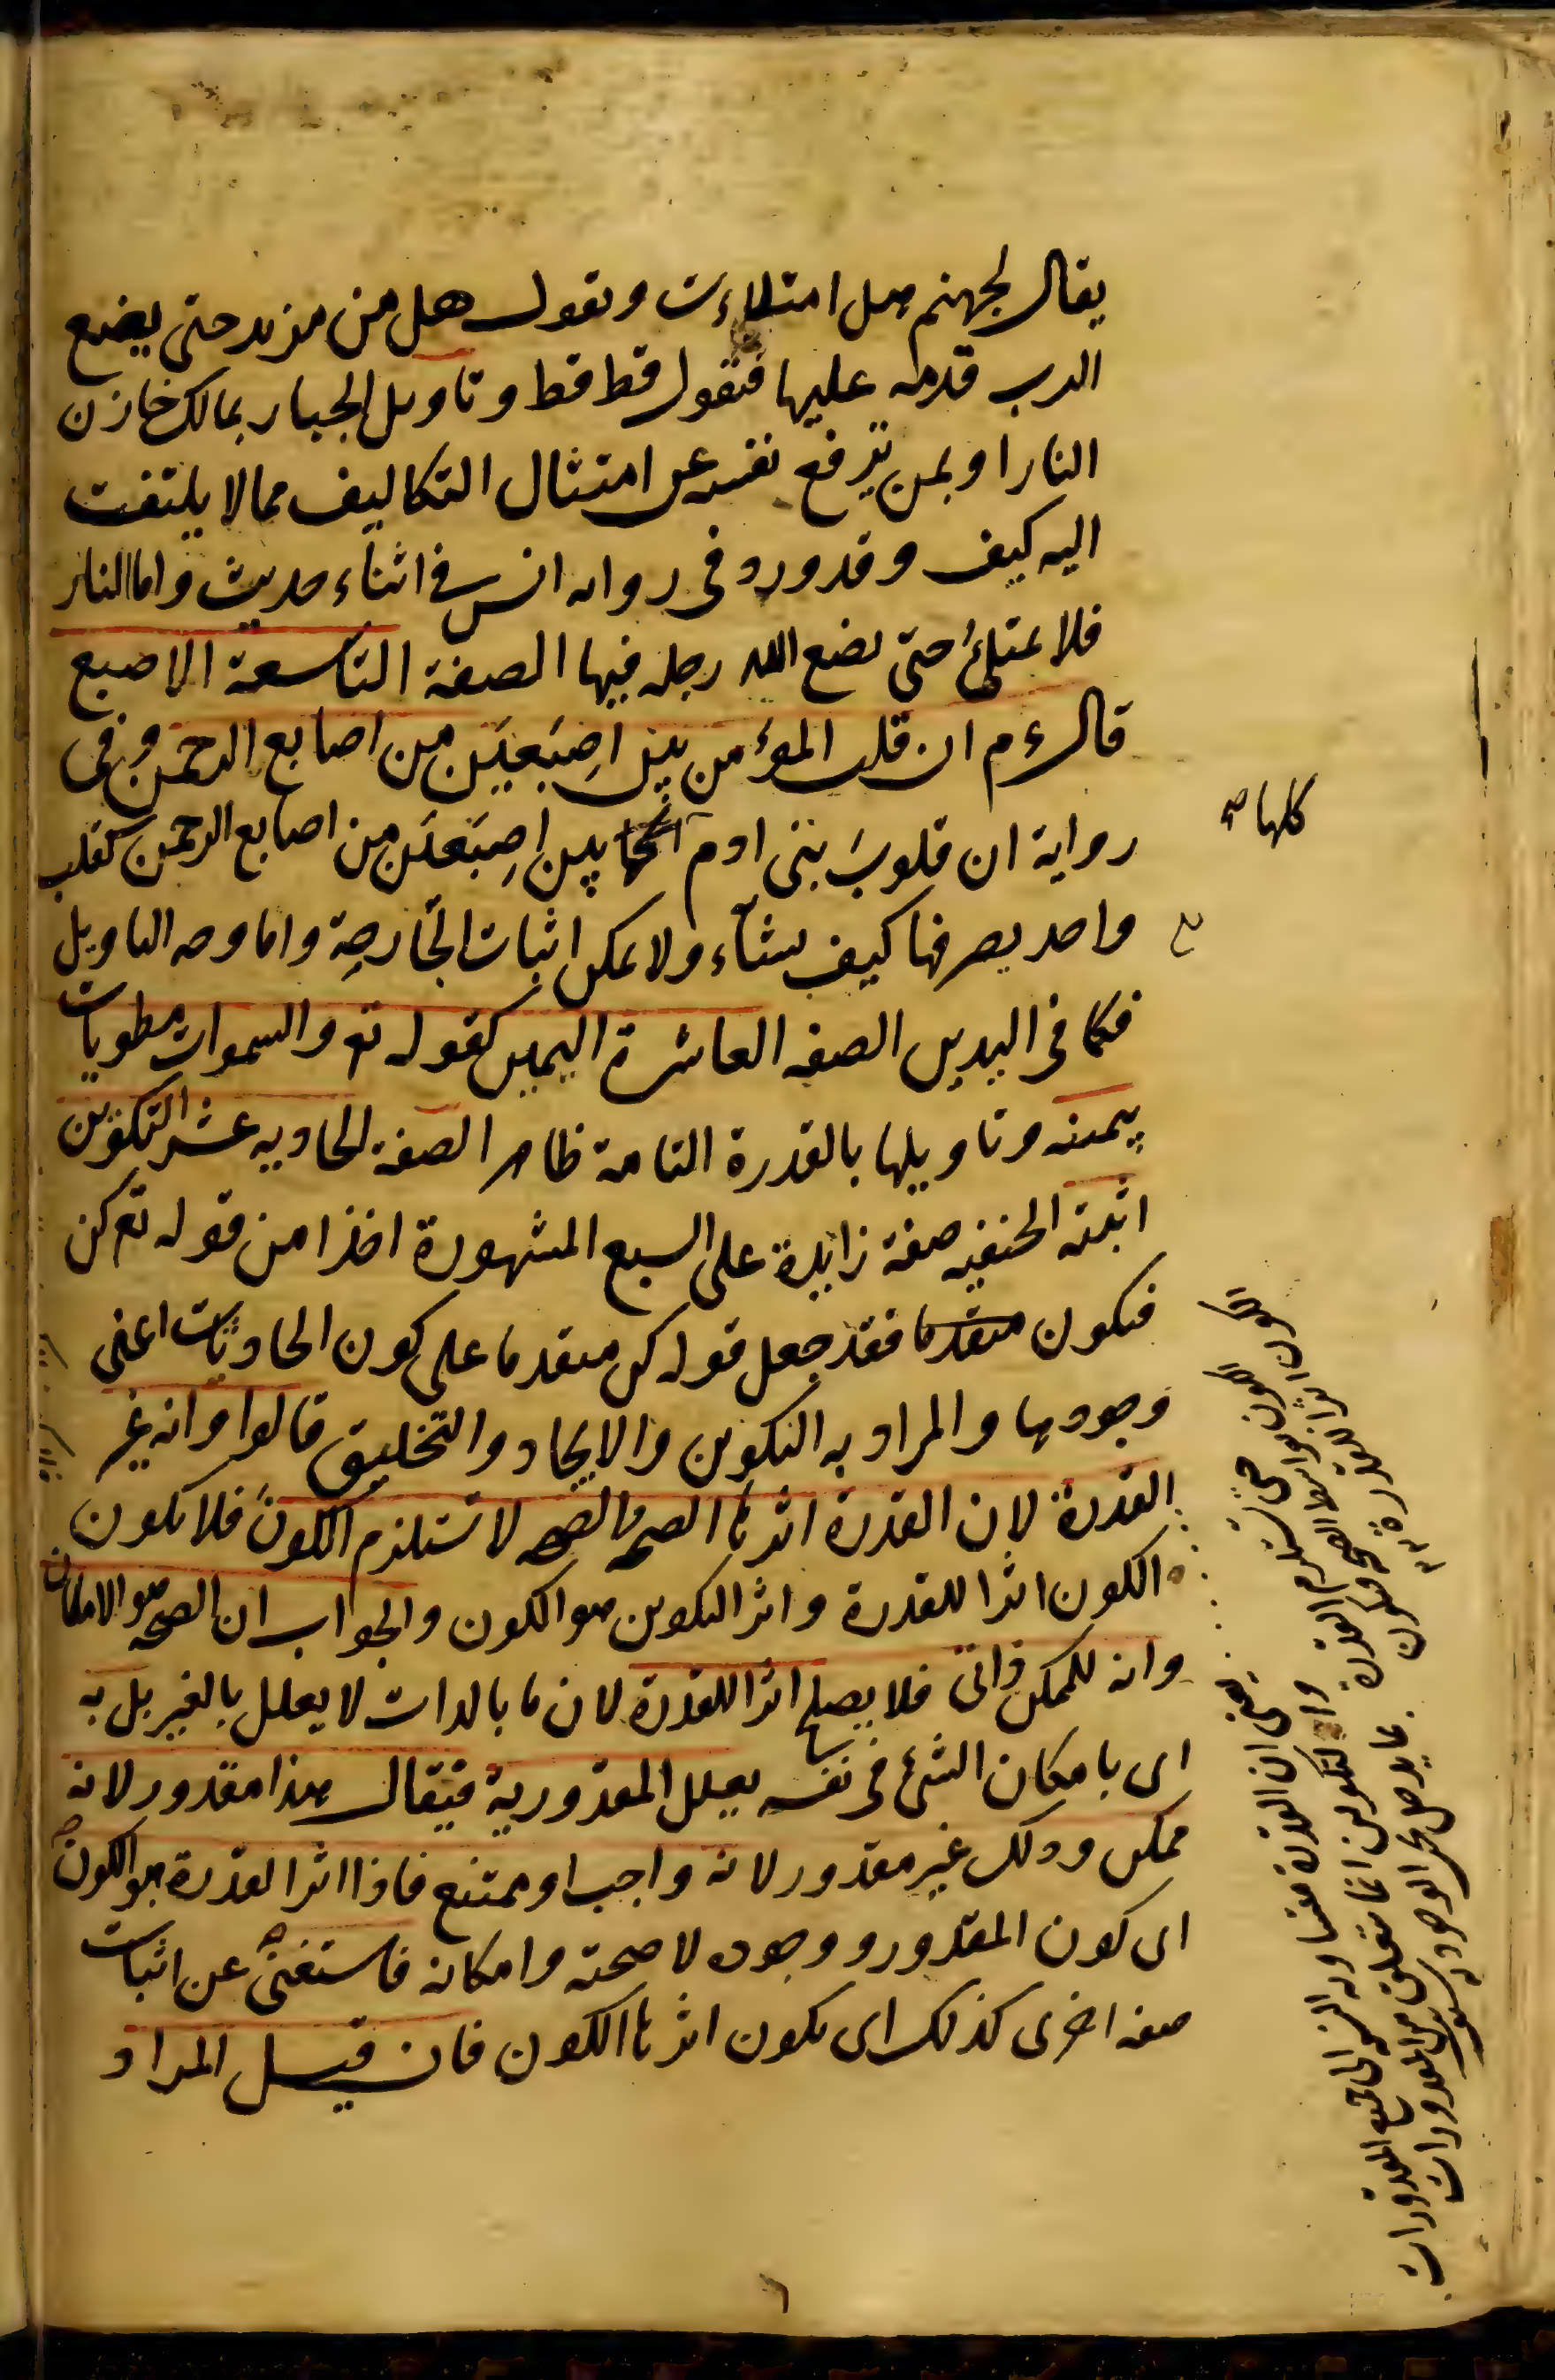 يقال لجهنم هل امتلاءت وتقول هل من مزيد حتى يضع
الرب قدمه عليها فتقول قط قط وتاويل الجبار بمالك خازن
النار او بمن يرفع نفسه عن امتثال التكاليف مما لا يلتفت
اليه كيف وقد ورد في رواية انس في اثناء حديث واما النار
فلا تمتلئ حتى يضع الله رجله فيها الصفة التاسعة الاصبع
قال ءم ان قلب المؤمن بين اصبعين من اصابع الرحمن وفي
رواية ان قلوب بني ادم كلها بين اصبعين من اصابع الرحمن كقلب
واحد يصرفها كيف يشاء ولا يمكن اثبات الجارحة واما وجه التاويل
فكما في اليدين الصفة العاشرة اليمين كقوله تع والسموات مطويات
بيمينه وتاويلها بالقدرة التامة ظاهر الصفة الحادية عشر التكوين
اثبته الحنفيه صفة زايدة على السبع المشهورة اخذا من قوله تع كن
فيكون فقد جعل قوله كن متقدما على كون الحادثات اعني
وجودها والمراد به التكوين والايجاد والتخليق قالوا وانه غير
القدرة لان القدرة اثرها الصحة والصحة لا تستلزم الكون فلا يكون
الكون اثرا للقدرة واثر التكوين هو الكون والجواب ان الصحة هو الامكان
وانه للممكن ذاتي فلا يصلح اثرا للقدرة لان ما بالذات لا يعلل بالغير بل به
اى بامكان الشئ في نفسه يعلل المقدورية فيقال هذا مقدور لانه
ممكن وذلك غير مقدور لانه واجب او ممتنع فاذا اثر القدرة هو الكون
اى كون المقدور ووجوده لا صحته وامكانه فاستغنى عن اثبات
صفة اخرى كذلك اى يكون اثرها الكون فان قيل المراد
كلها صح
يعني ان القدرة متساوية النسبة الى جميع المقدورات
والتكوين انما يتعلق من المقدورات